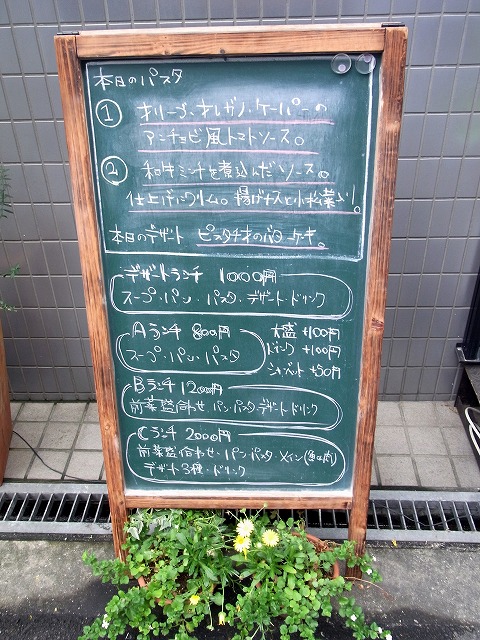 本日のパスタ
① オリーブ、オレガノ・ケーパーの
アンチョビ風トマトソース。
② 和牛ミンチを煮込んだソース。
仕上げにクリーム。揚げナスと小松菜入り。
本日のデザート ピスタチオのバターケーキ。
デザートランチ 1000円
スープ・パン・パスタ・デザート・ドリンク
Aランチ 800円
スープ・パン・パスタ
大盛 +100円
ドリンク +100円
シャーベット +50円
Bランチ 1200円
前菜盛合わせ・パン・パスタ・デザート・ドリンク
Cランチ 2000円
前菜盛合わせ・パン・パスタ メイン(魚or肉)
デザート3種・ドリンク